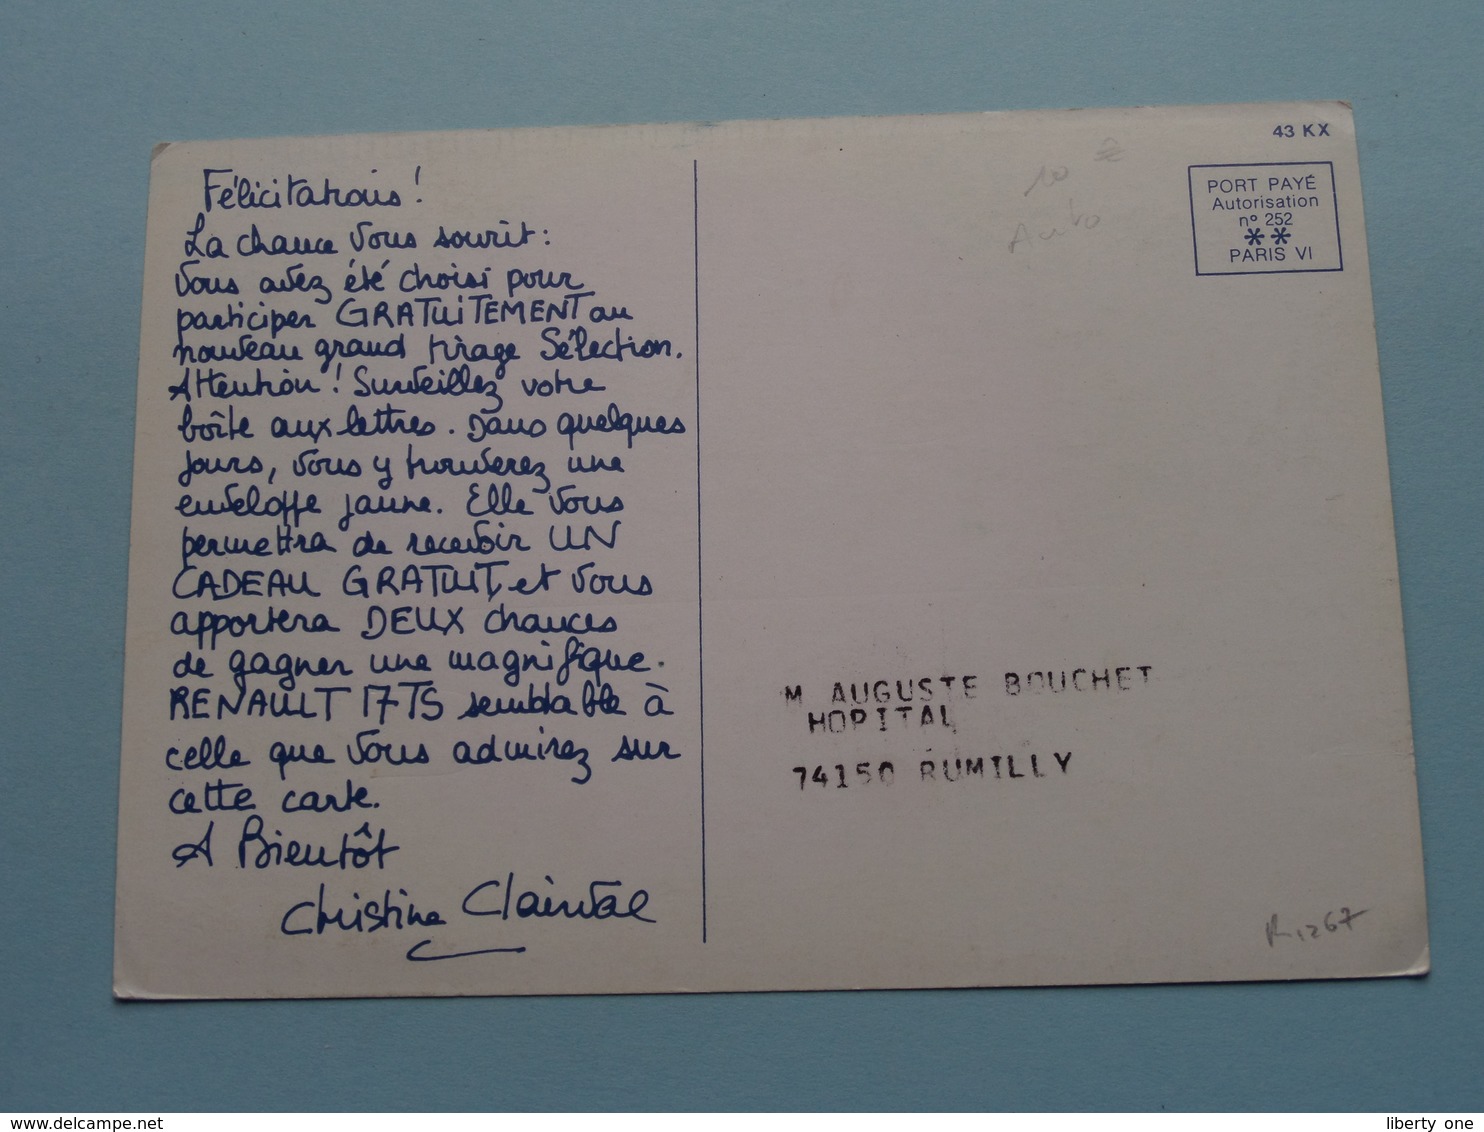 Félicitations!
La chance vous sourit:
Vous avez été choisi pour
participer GRATUITEMENT au
nouveau grand tirage Sélection.
Attention! Surveillez votre
boîte aux lettres. Dans quelques
jours, vous y trouverez une
enveloppe jaune. Elle vous
permettra de recevoir UN
CADEAU GRATUIT, et vous
apportera DEUX chances
de gagner une magnifique
RENAULT 17TS semblable à
celle que vous admirez sur
cette carte.
A Bientôt
Christine Clairval
43 KX
PORT PAYÉ
Autorisation
nº 252
**
PARIS VI
10
Auto
M AUGUSTE BOUCHET
HOPITAL
74150 RUMILLY
delcampe.net
liberty one